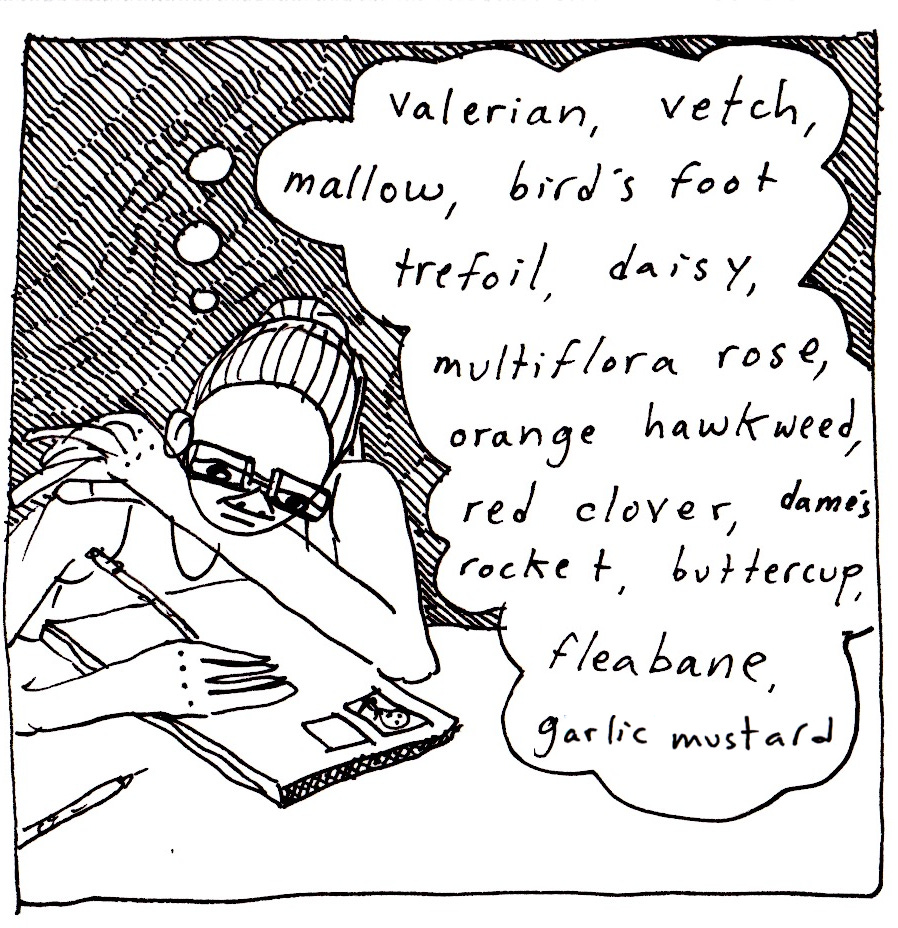 valerian, vetch,
mallow, bird's foot
trefoil, daisy,
multiflora rose,
orange hawkweed,
red clover, dame's
rocket, buttercup,
fleabane,
garlic mustard